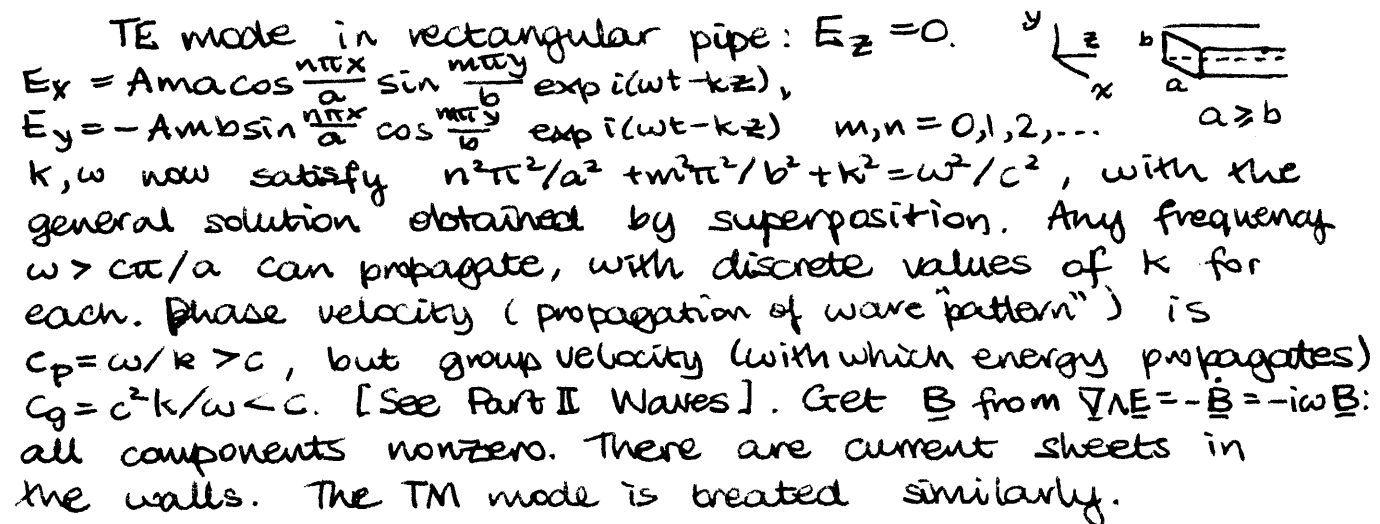 TE mode in rectangular pipe: E_z = 0. y z x b a
E_x = Ama cos nπx/a sin mπy/b exp i(ωt-kz),
E_y = -Amb sin nπx/a cos mπy/b exp i(ωt-kz) m,n = 0,1,2,... a ⩾ b
k,ω now satisfy n²π²/a² + m²π²/b² + k² = ω²/c², with the
general solution obtained by superposition. Any frequency
ω > cπ/a can propagate, with discrete values of k for
each. Phase velocity (propagation of wave "pattern") is
c_p = ω/k > c, but group velocity (with which energy propagates)
c_g = c²k/ω < c. [See Part II Waves]. Get B from ∇∧E = -Ḃ = -iωB:
all components nonzero. There are current sheets in
the walls. The TM mode is treated similarly.